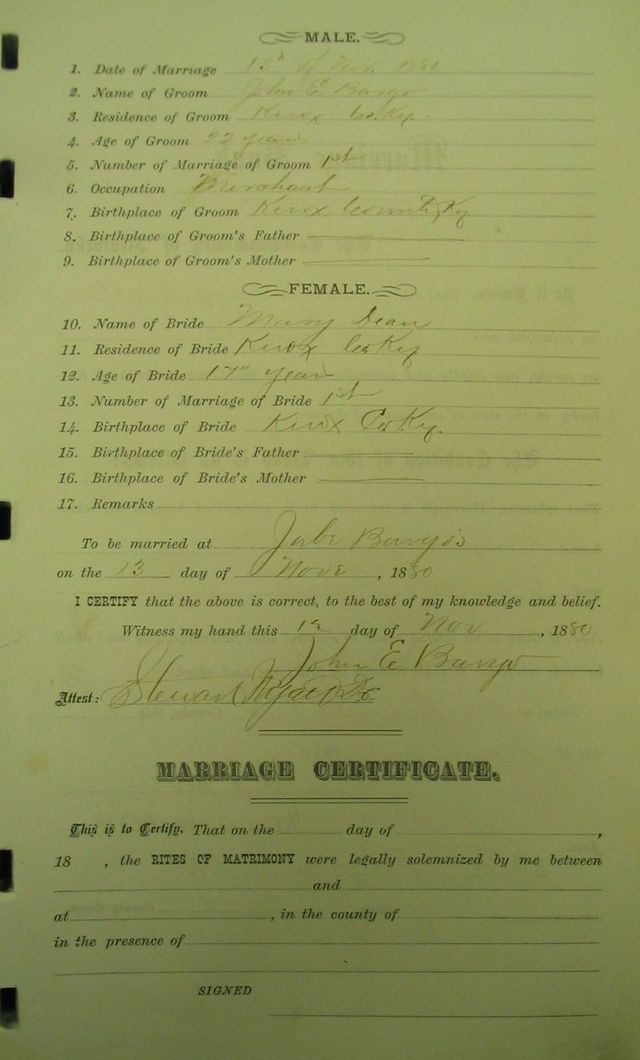 MALE.
1. Date of Marriage 13th of Nov. 1880
2. Name of Groom John E Bargo
3. Residence of Groom Knox Co. Ky.
4. Age of Groom 22 years
5. Number of Marriage of Groom 1st
6. Occupation Merchant
7. Birthplace of Groom Knox County, Ky
8. Birthplace of Groom's Father
9. Birthplace of Groom's Mother
FEMALE.
10. Name of Bride Mary Dean
11. Residence of Bride Knox Co Ky
12. Age of Bride 17" year
13. Number of Marriage of Bride 1st
14. Birthplace of Bride Knox Co Ky.
15. Birthplace of Bride's Father
16. Birthplace of Bride's Mother
17. Remarks
To be married at Jabe Bargo's
on the 13 day of Nove, 1880
I CERTIFY that the above is correct, to the best of my knowledge and belief.
Witness my hand this 12 day of Nov, 1880
John E Bargo
Attest: Stewart
MARRIAGE CERTIFICATE.
This is to Certify, That on the day of ,
18 , the RITES OF MATRIMONY were legally solemnized by me between
and
at , in the county of
in the presence of
SIGNED